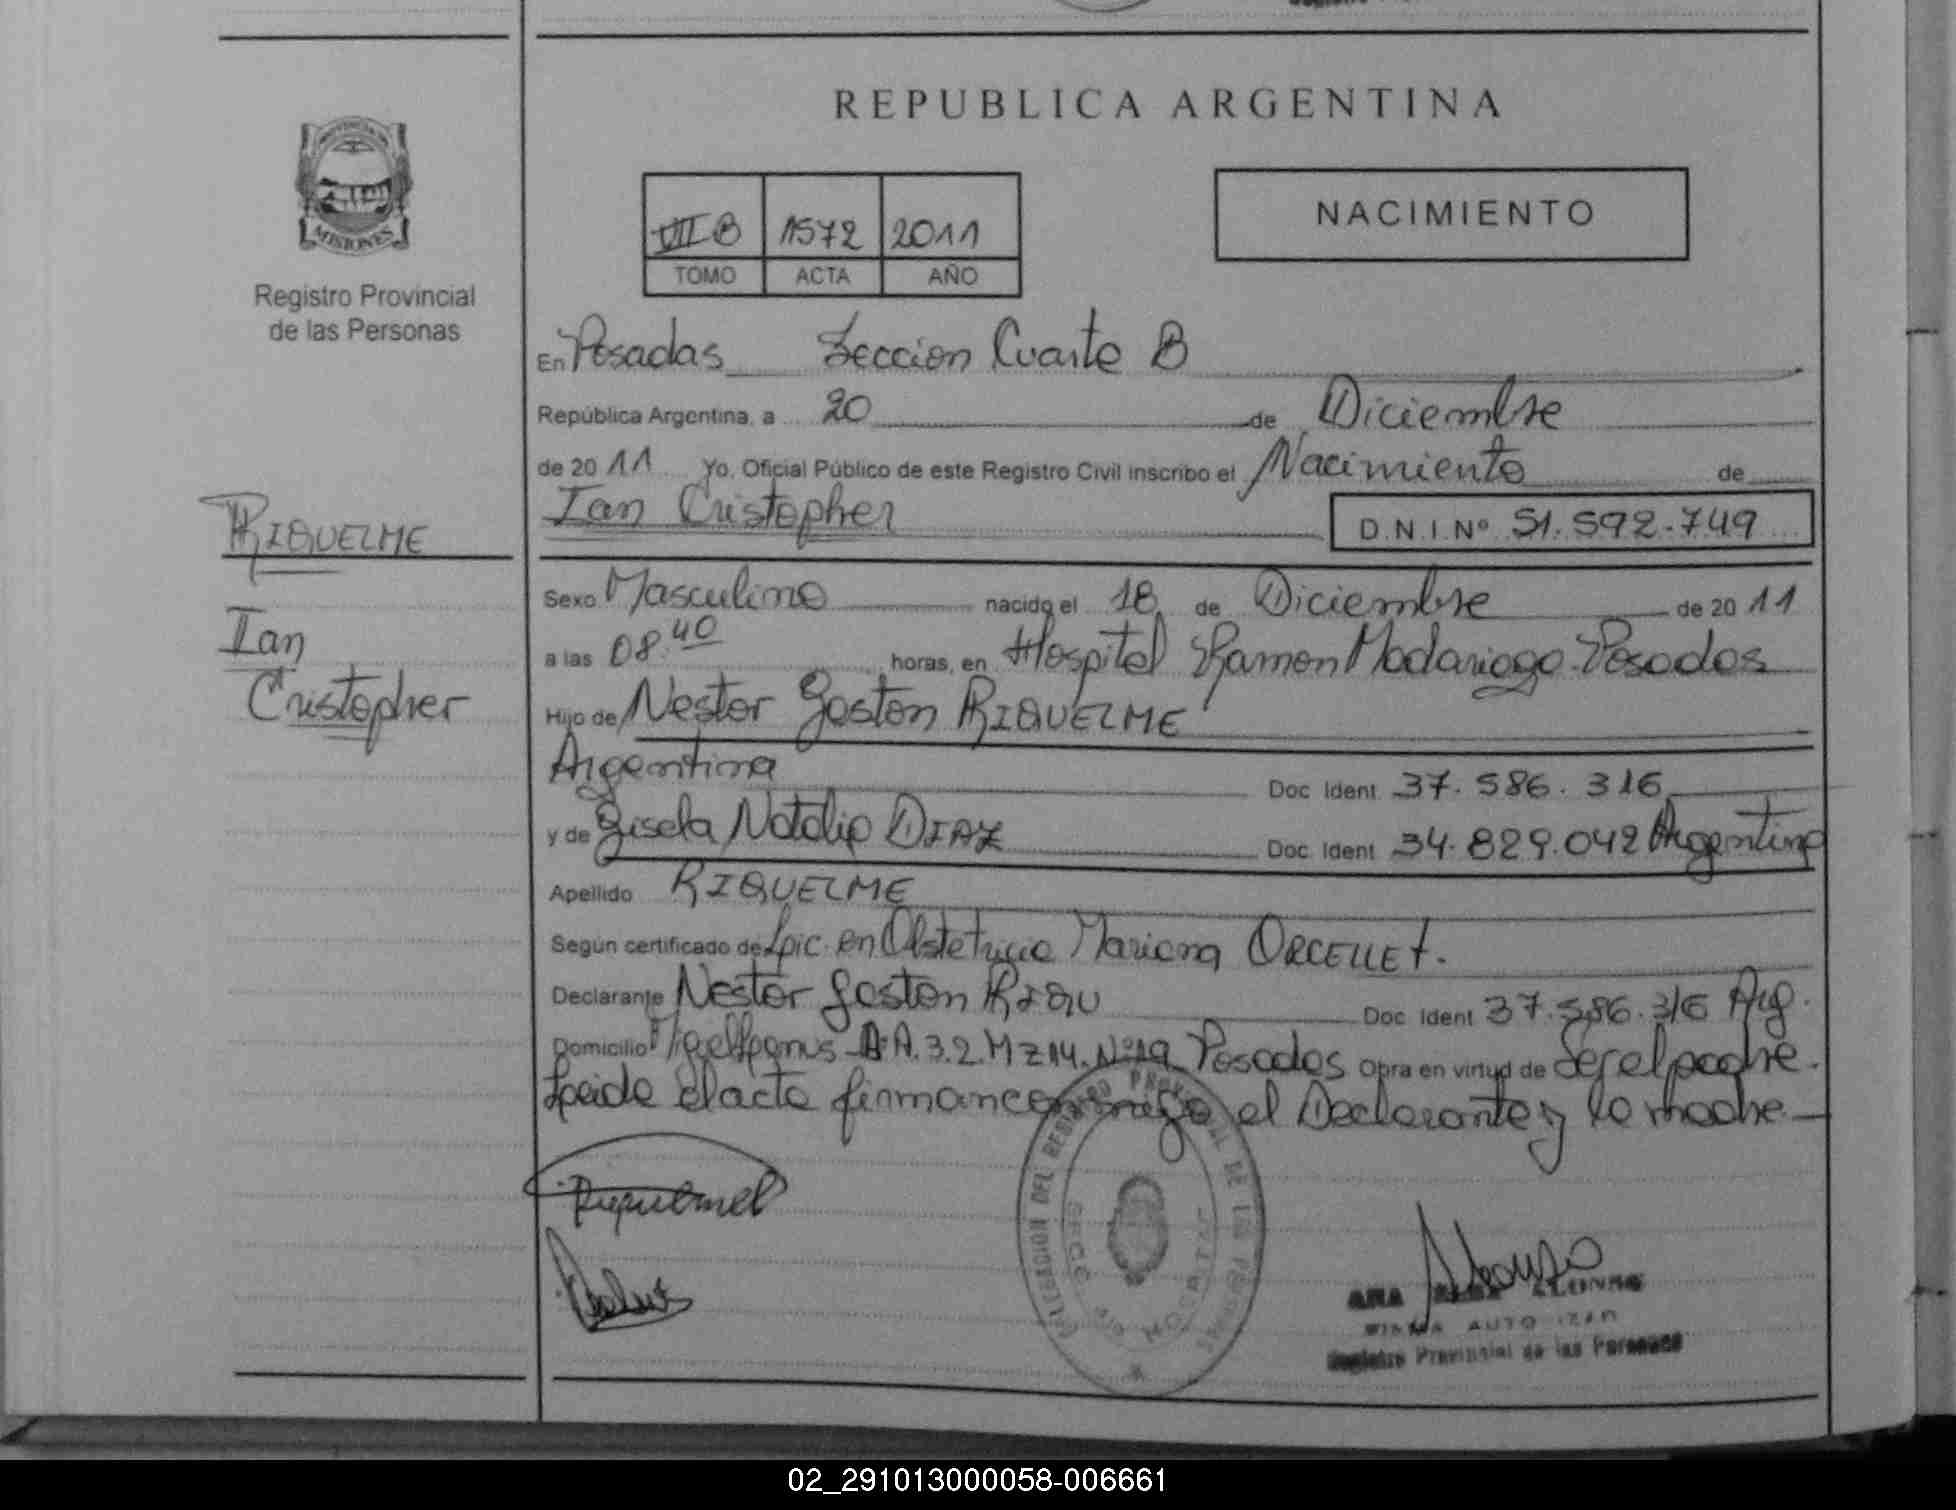 REPUBLICA ARGENTINA
PROVINCIA DE
MISIONES
Registro Provincial
de las Personas
VII B 1572 2011
TOMO ACTA AÑO
NACIMIENTO
En Posadas Seccion Cuarta B
República Argentina, a 20 de Diciembre
de 2011 Yo, Oficial Público de este Registro Civil inscribo el Nacimiento de
Ian Cristopher D.N.I. Nº 51.592.749
RIQUELME
Ian
Cristopher
Sexo Masculino nacido el 18 de Diciembre de 2011
a las 08:40 horas, en Hospital Ramon Madariaga. Posadas
Hijo de Nestor Gaston RIQUELME
Argentina Doc Ident 37.586.316
y de Gisela Natalia DIAZ Doc Ident 34.829.042 Argentina
Apellido RIQUELME
Según certificado de Lic. en Obstetricia Mariana ORCELLET.
Declarante Nestor Gaston RIQU Doc Ident 37.586.316 Arg.
Domicilio A.3.2. Mz 14. Nº 19 Posadas Obra en virtud de Ser el padre.
Leida el acta firman conmigo el Declarante y la madre
DELEGACION DEL REGISTRO PROVINCIAL DE LAS PERSONAS
HOSPITAL
ANA ALONSO
FIRMA AUTORIZADA
Registro Provincial de las Personas
02_291013000058-006661